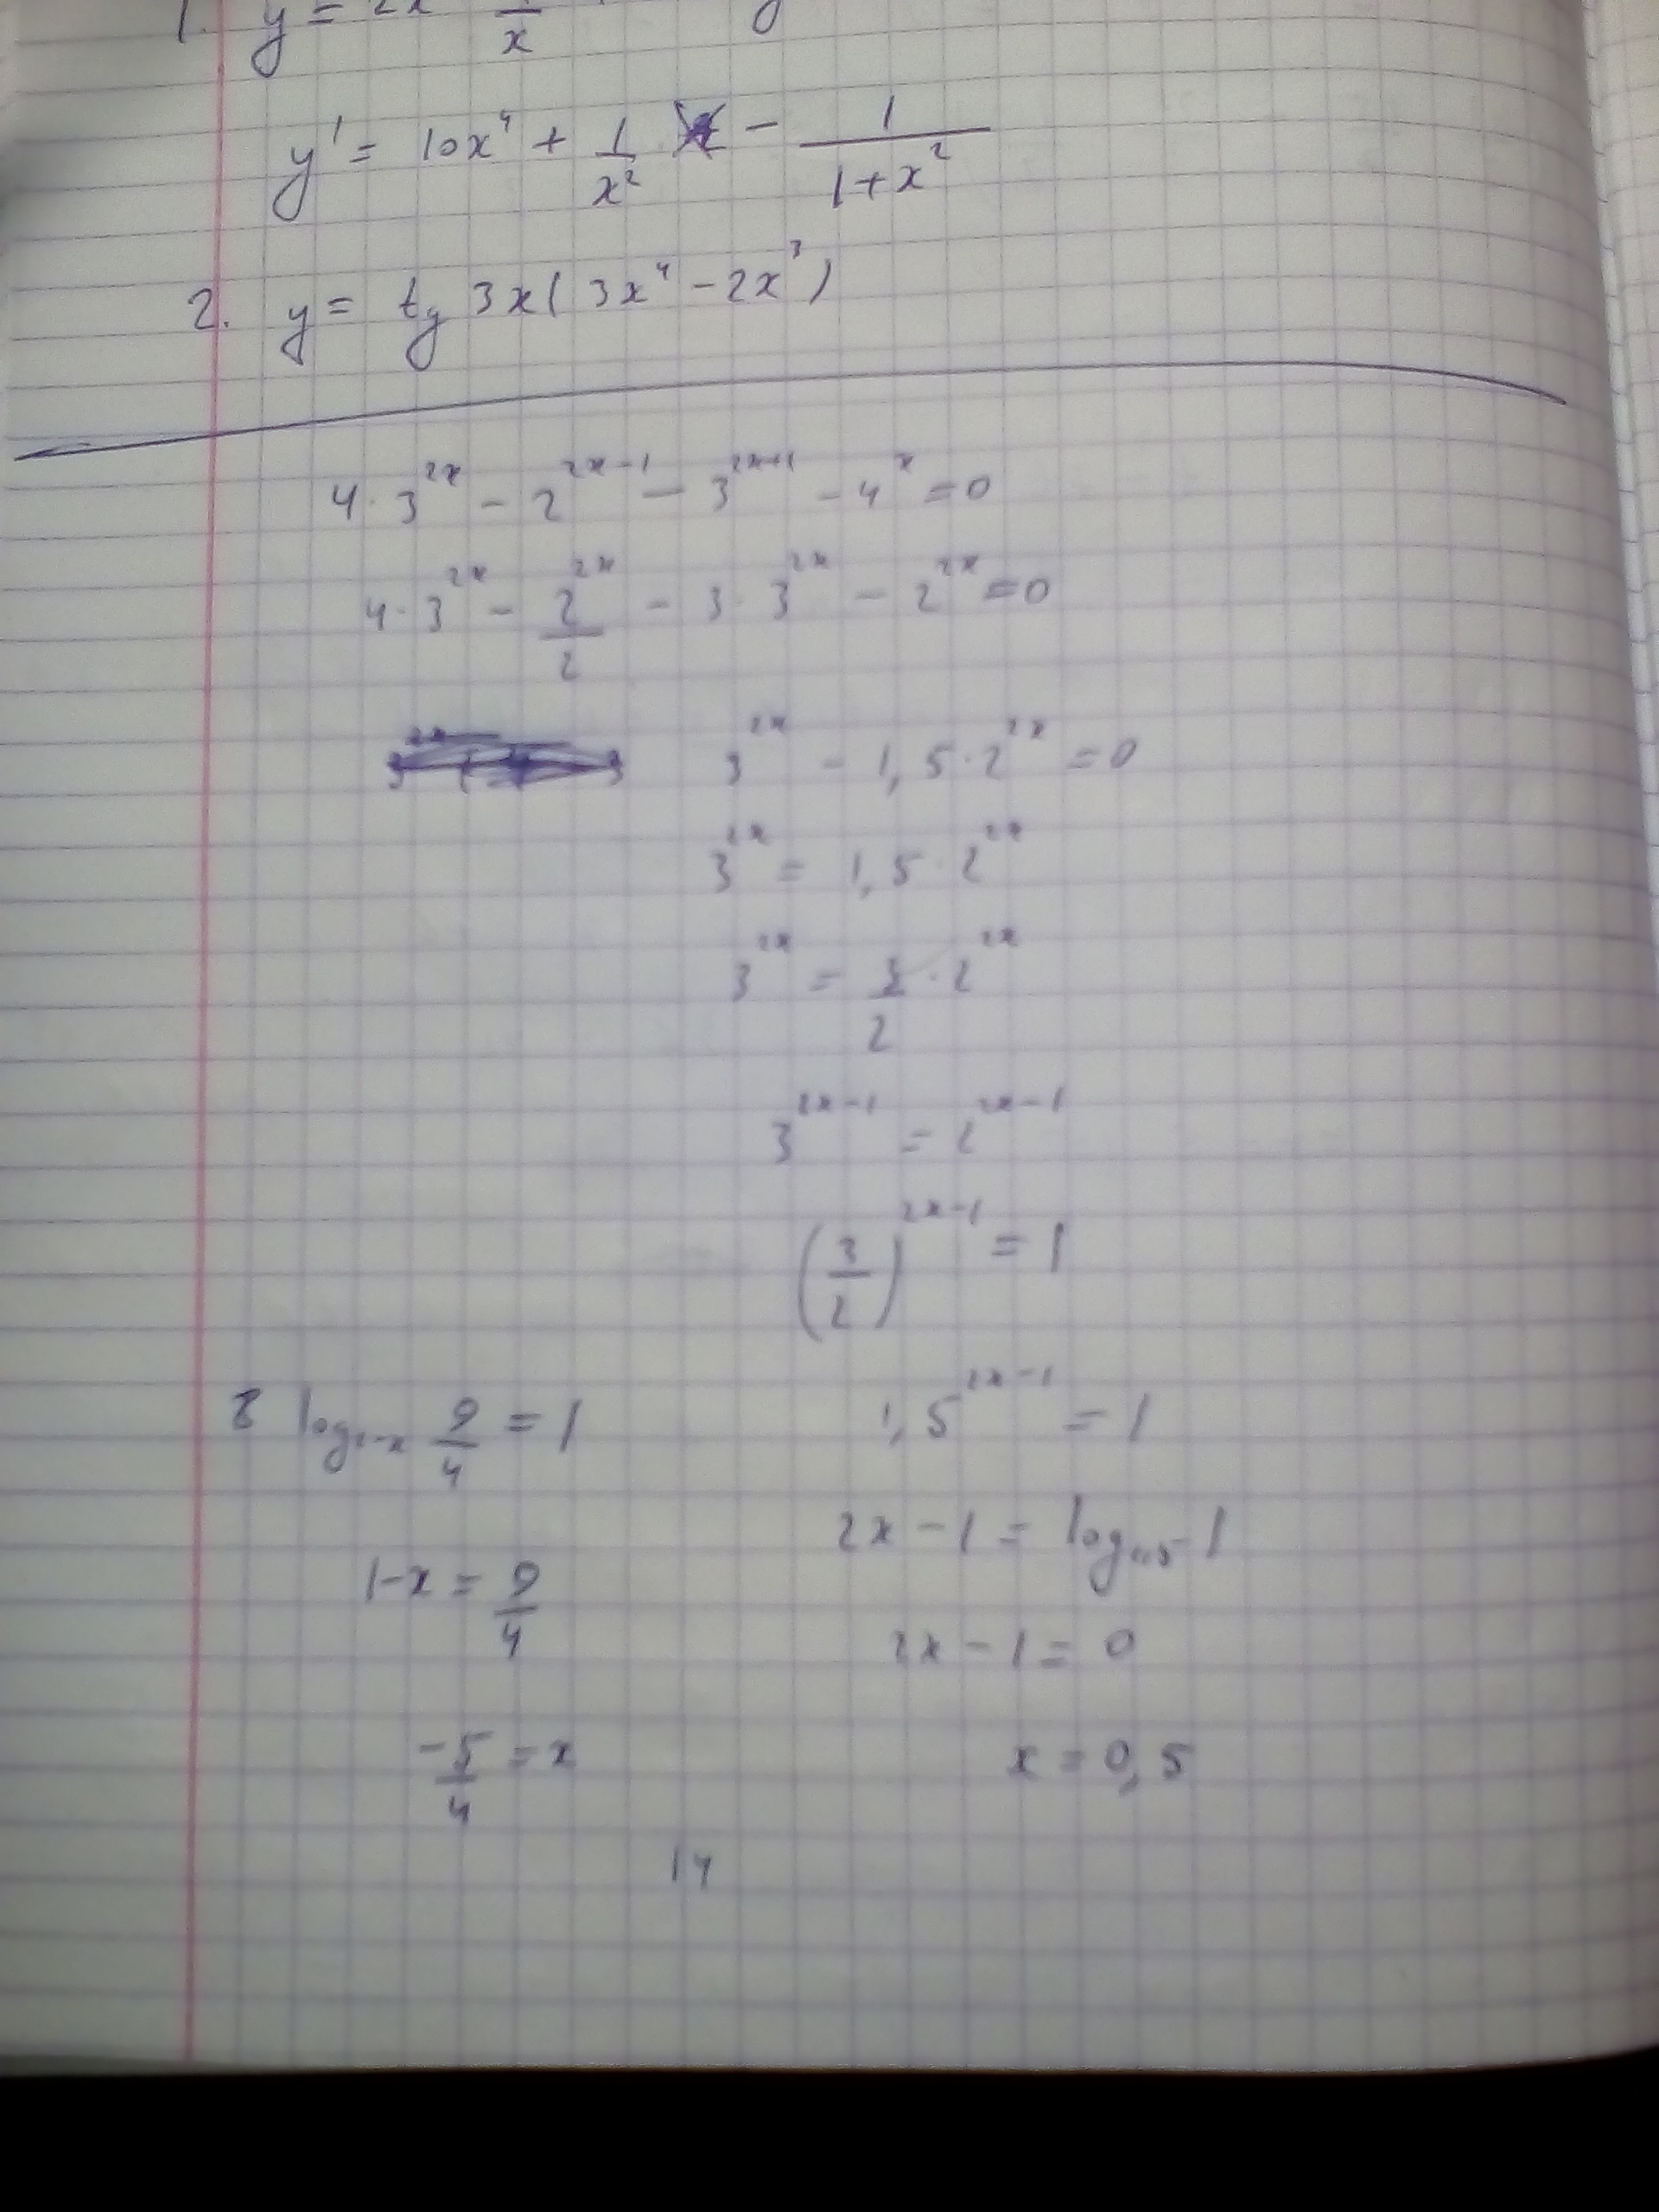 1. y = 2x 1/x y
y' = 10x⁴ + 1/x² - 1/(1+x²)
2. y = tg 3x(3x⁴ - 2x³)
4·3^(2x) - 2^(2x-1) - 3^(2x+1) - 4^x = 0
4·3^(2x) - 2^(2x)/2 - 3·3^(2x) - 2^(2x) = 0
3^(2x) - 1,5·2^(2x) = 0
3^(2x) = 1,5·2^(2x)
3^(2x) = 3/2·2^(2x)
3^(2x-1) = 2^(2x-1)
(3/2)^(2x-1) = 1
1,5^(2x-1) = 1
2x - 1 = log_(1,5) 1
2x - 1 = 0
x = 0,5
8 log_(1-x) 9/4 = 1
1-x = 9/4
-5/4 = x
14